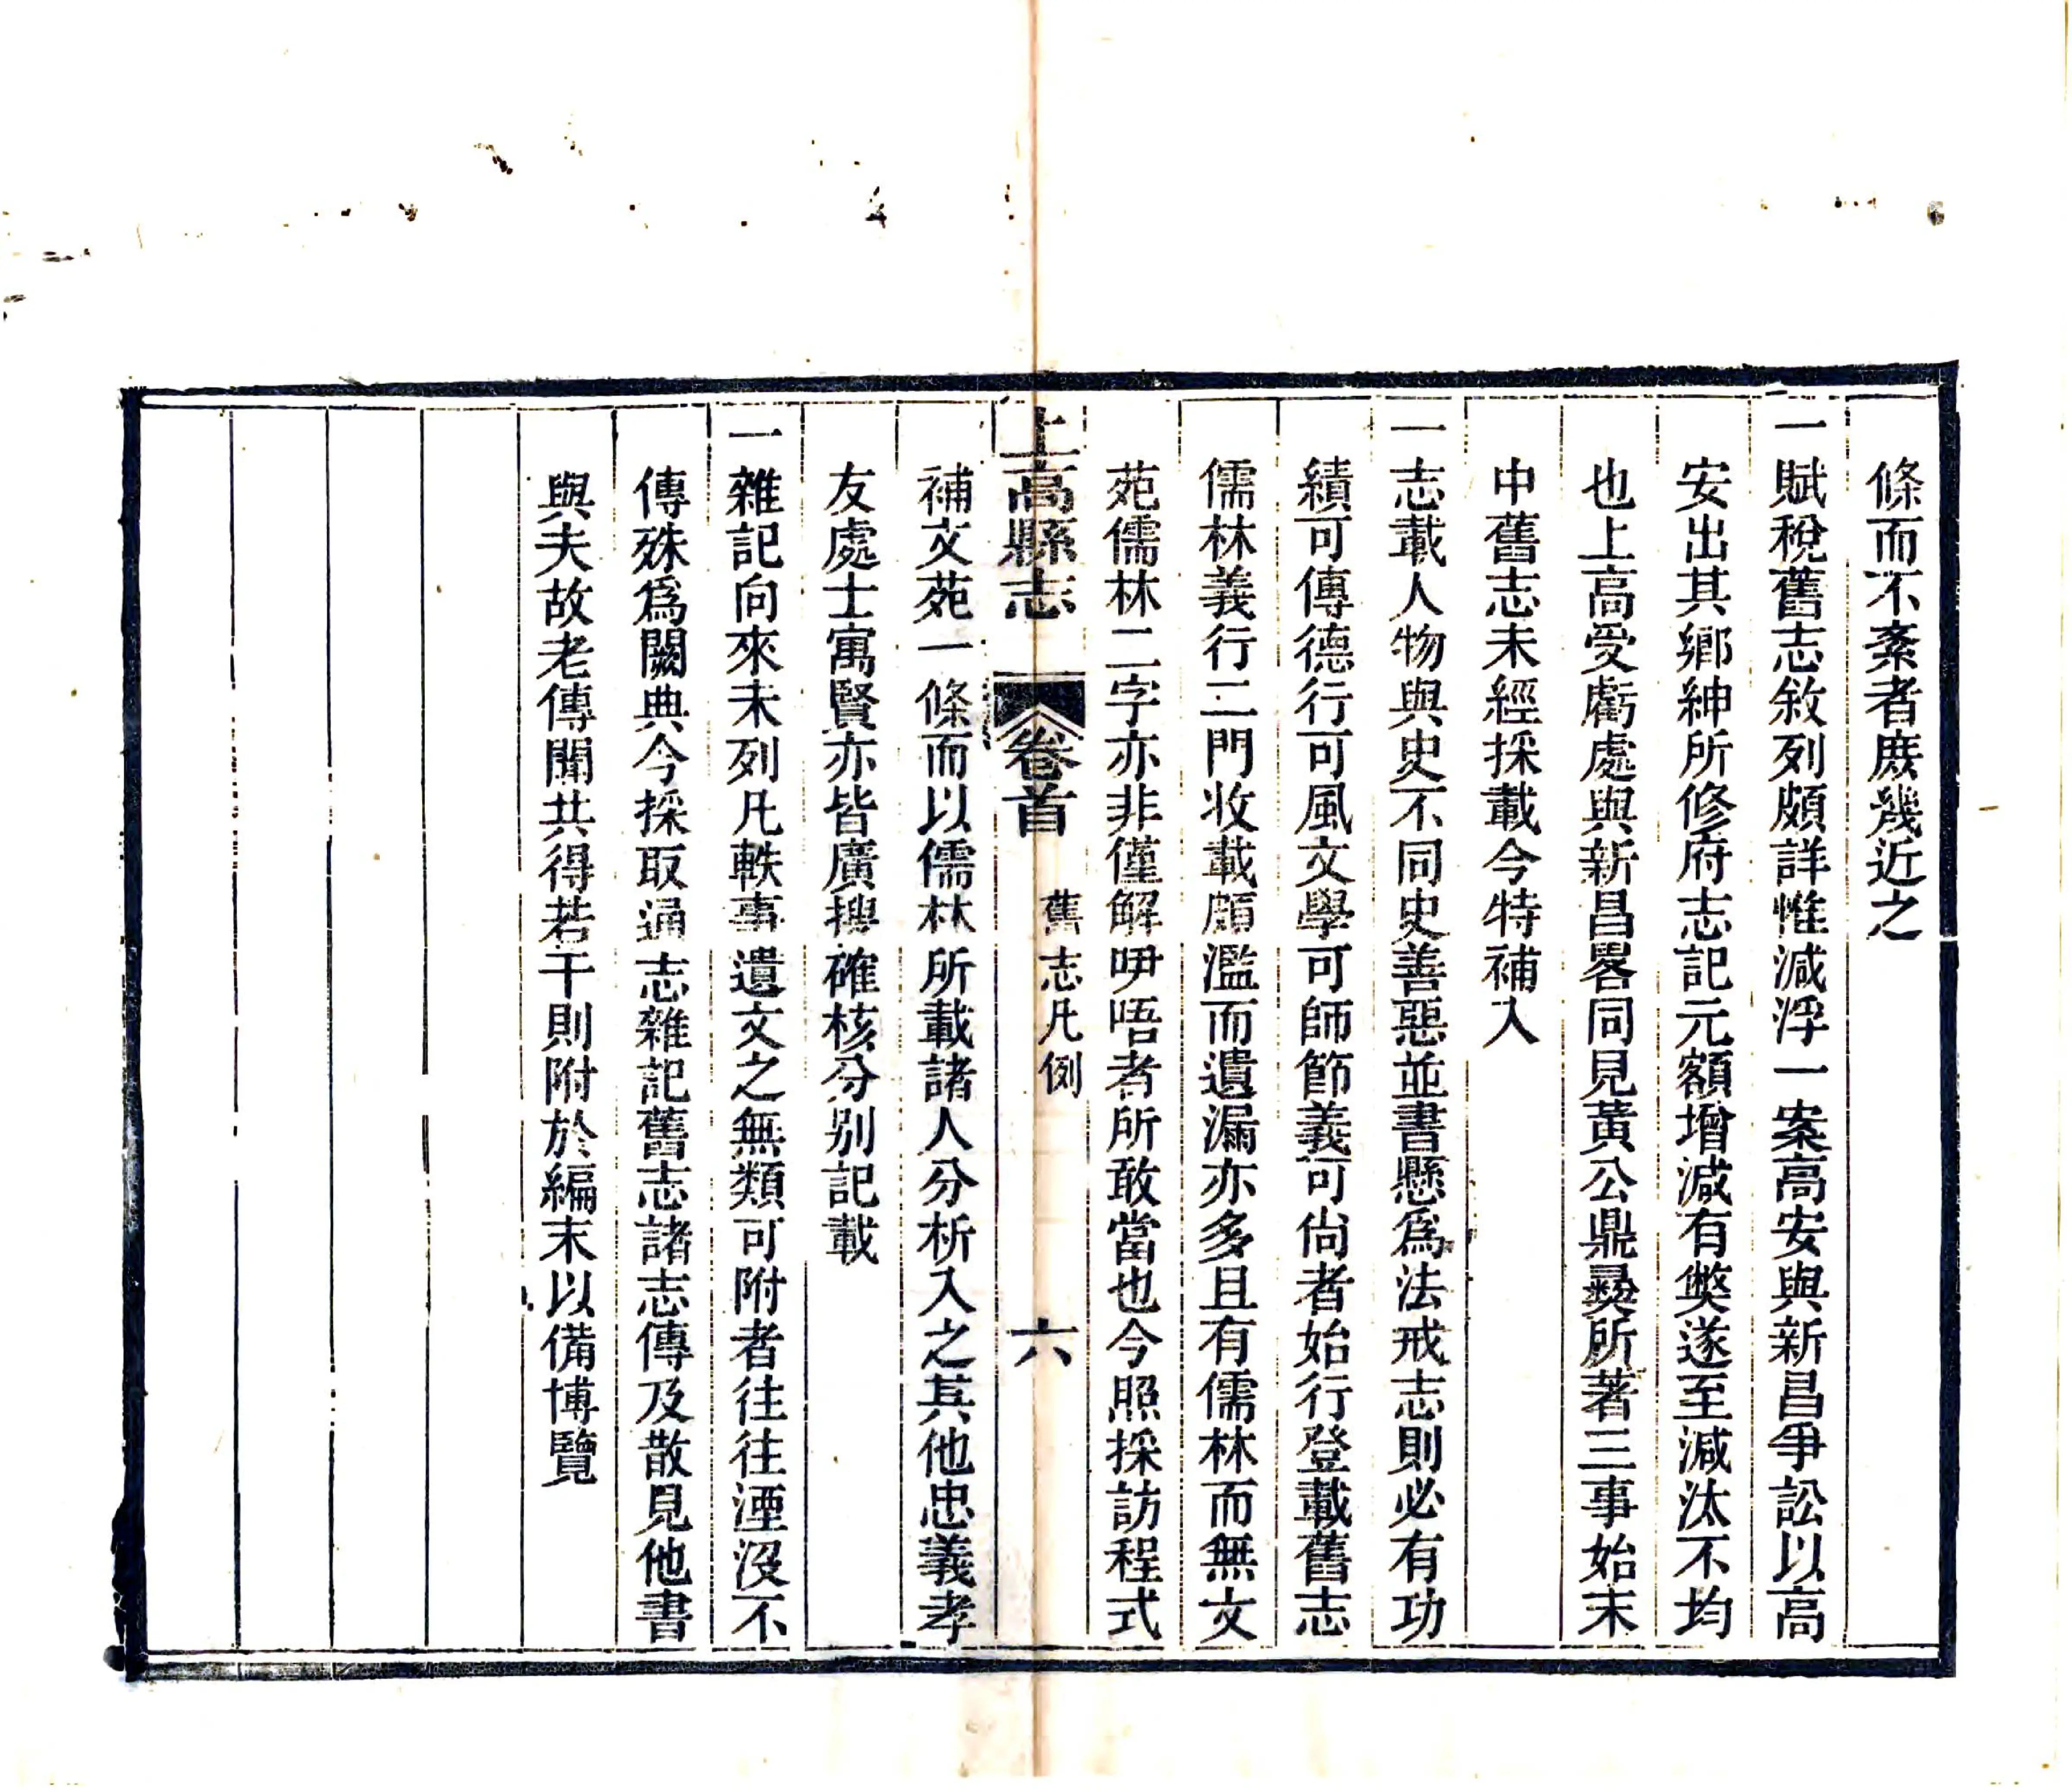 條而不紊者庶幾近之
一賦稅舊志敘列頗詳惟減浮一案高安與新昌爭訟以高
安出其鄉紳所修府志記元額增減有獘遂至減汰不均
也上高受虧處與新昌畧同見黃公鼎彝所著三事始末
中舊志未經採載今特補入
一志載人物與史不同史善惡並書懸爲法戒志則必有功
績可傳德行可風文學可師節義可尙者始行登載舊志
儒林義行二門收載頗濫而遺漏亦多且有儒林而無文
苑儒林二字亦非僅解咿唔者所敢當也今照採訪程式
上高縣志 卷首 舊志凡例 六
補文苑一條而以儒林所載諸人分析入之其他忠義孝
友處士寓賢亦皆廣搜確核分別記載
一雜記向來未列凡軼事遺文之無類可附者往往湮沒不
傳殊爲闕典今採取通志雜記舊志諸志傳及散見他書
與夫故老傳聞共得若干則附於編末以備博覽